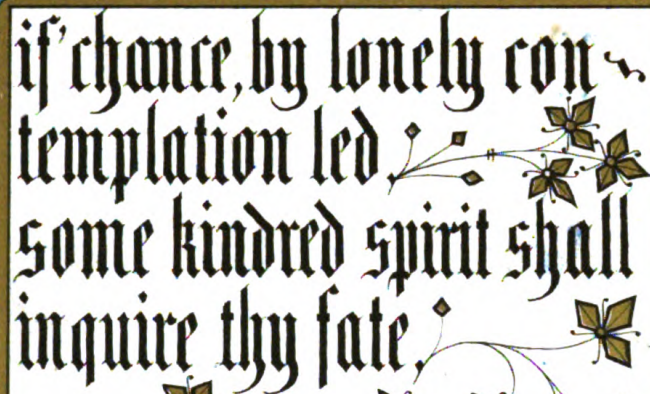 if' chance, by lonely con~
templation led,
some kindred spirit shall
inquire thy fate,